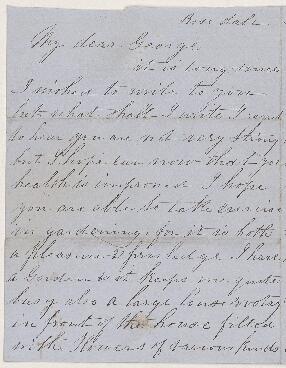 Rose dale
My dear George
it is long since
I wished to write to you
but what shall I write I regret
to hear you are not very strong
but I hope ere now that your
health is improved I hope
you are able to take exercise
in gardening for it is both
a pleasure & priviledge I have
a Garden & it keeps me quite
busy also a large
in front of the house filled
with flowers of various kinds